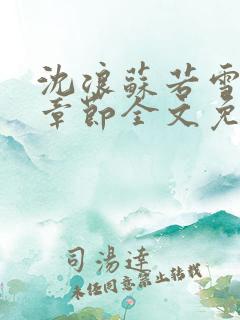 沈浪蘇若雪
章節全文免
司湯達
未经同意禁止转载